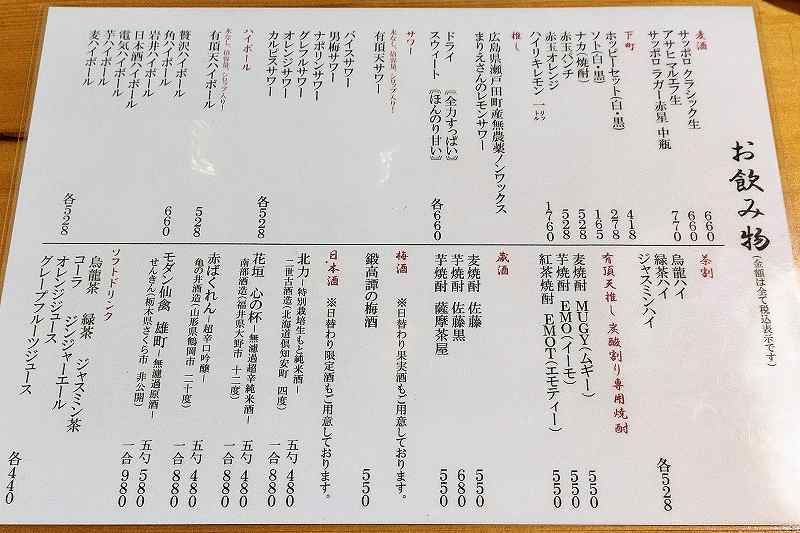 お飲み物
(金額は全て税込表示です)
麦酒
サッポロ クラシック生 660
アサヒ マルエフ生 660
サッポロ ラガー赤星 中瓶 770
下町
ホッピーセット(白・黒) 418
ソト(白・黒) 278
ナカ(焼酎) 165
赤玉パンチ 528
赤玉オレンジ 528
ハイリキレモン 一リットル 1760
推し
広島県瀬戸田町産無農薬ノンワックス
まりえさんのレモンサワー
ドライ 〘全力すっぱい〙
スウィート 〘ほんのり甘い〙 各660
サワー
有頂天サワー
バイスサワー
男梅サワー
ナポリンサワー
グレフルサワー
オレンジサワー
カルピスサワー 各528
ハイボール
有頂天ハイボール 528
贅沢ハイボール 660
角ハイボール
岩井ハイボール
日本酒ハイボール
電気ハイボール
芋ハイボール
麦ハイボール 各528
茶割
烏龍ハイ
緑茶ハイ
ジャスミンハイ 各528
有頂天推し 炭酸割り専用焼酎
麦焼酎 MUGY(ムギー) 550
芋焼酎 EMO(イーモ) 550
紅茶焼酎 EMOT(エモティー) 550
蔵酒
麦焼酎 佐藤 550
芋焼酎 佐藤黒 680
芋焼酎 薩摩茶屋 550
梅酒 ※日替わり果実酒もご用意しております。
鍛高譚の梅酒 550
日本酒 ※日替わり限定酒もご用意しております。
北力ー特別栽培生もと純米酒ー 五勺 480
二世古酒造(北海道倶知安町 四度) 一合 880
花垣 心の杯ー無濾過超辛純米酒ー 五勺 480
南部酒造(福井県大野市 十二度) 一合 880
赤ばくれんー超辛口吟醸ー 五勺 480
亀の井酒造(山形県鶴岡市 二十度) 一合 880
モダン仙禽 雄町ー無濾過原酒ー 五勺 580
せんきん(栃木県さくら市 非公開) 一合 980
ソフトドリンク
烏龍茶 緑茶 ジャスミン茶
コーラ ジンジャーエール
オレンジジュース
グレープフルーツジュース 各440